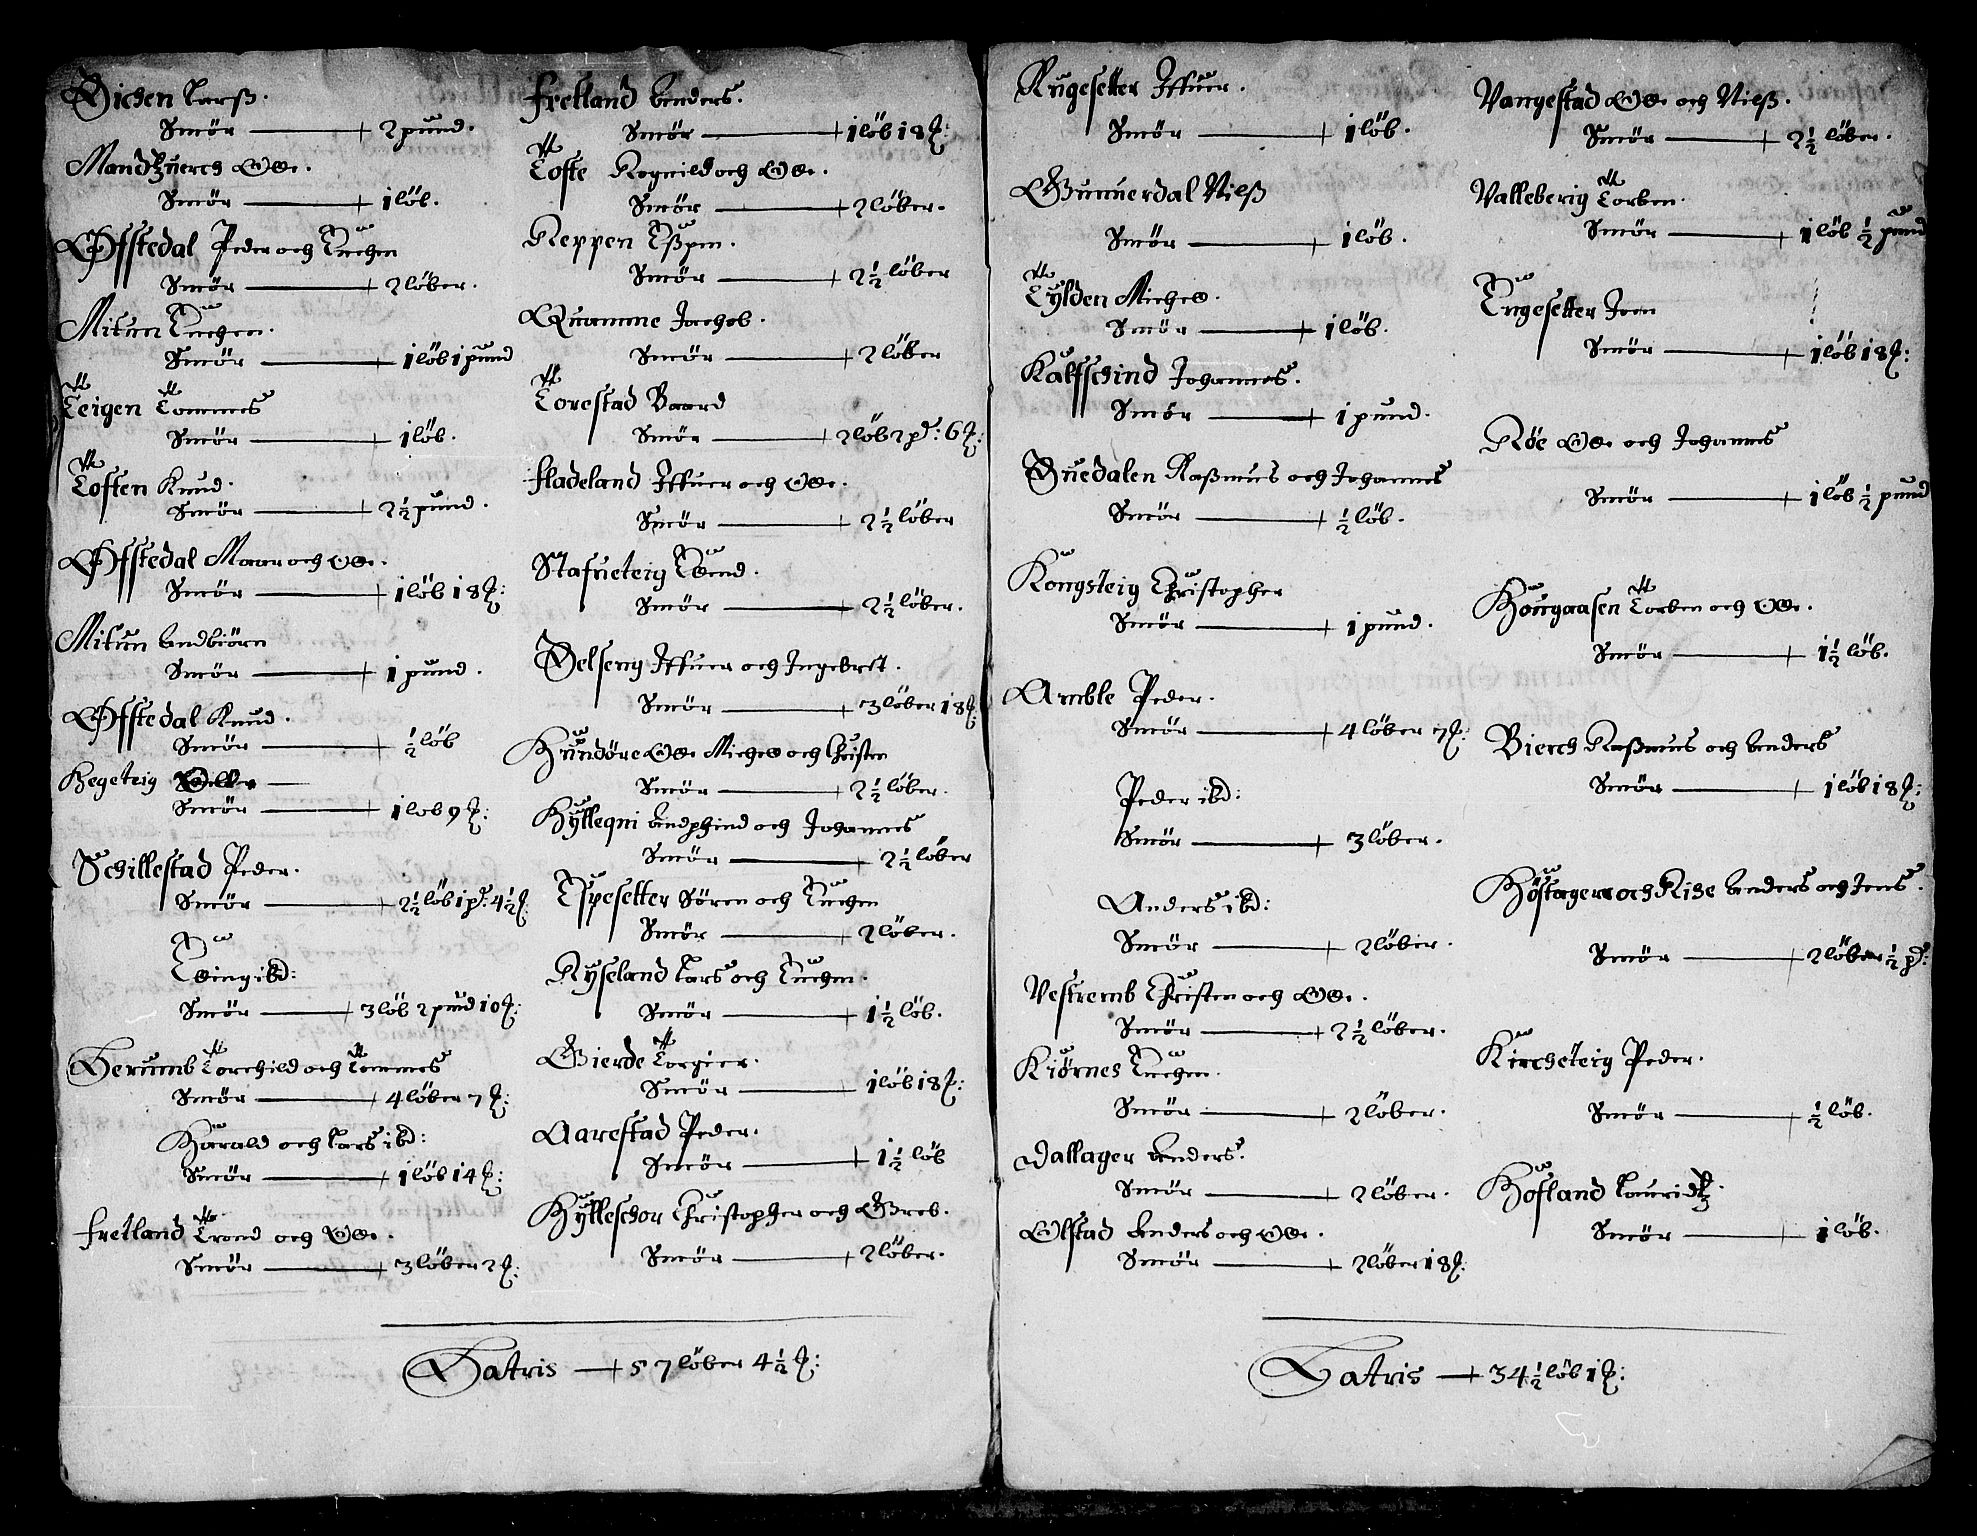 Vichen Larß.
Smör — 2 pund.
Mandzuerch Ole.
Smör — 1 löb.
Offstedal Peder och Anchen
Smör — 2 löber.
Mitun Anchen.
Smör — 1 löb 1 pund
Teigen Tommes
Smör — 1 löb.
Toften Knud.
Smör — 2½ pund.
Offstedal och Ole.
Smör — 1 löb 18 ℔:
Mitun Andbiörn
Smör — 1 pund.
Offstedal Knud.
Smör — ½ löb
Hegeteig
Smör — 1 lob 9 ℔:
Schillestad Peder.
Smör — 2½ löb 1 pd: 4½ ℔:
ibd:
Smör — 3 löb 2 pund 10 ℔:
Torchild och Tommes
Smör — 4 löber 7 ℔:
Harald och Lars ibd:
Smör — 1 löb 14 ℔:
Fretland Trond och Ole.
Smör — 3 löber 2 ℔:
Fretland Anders.
Smör — 1 löb 18 ℔:
Tofte Rognild och Ole.
Smör — 2 löber.
Reppen Eßpen.
Smör — 2½ löber
Quamme Jachob.
Smör — 2 löber
Torestad Baard
Smör — 2 löb 2 pd: 6 ℔:
Fladeland Iffuer och Ole.
Smör — 2½ löber
Stafueteig
Smör — 2½ löber.
Velseng Iffuer och Ingebret.
Smör — 3 löber 18 ℔:
Hundöre Ole Michel och Christen
Smör — 2½ löber.
Hylleqni Andphind och Johannes
Smör — 2½ löber
Espesetter Sören och Anchen
Smör — 2 löber.
Ryseland Lars och Anchen.
Smör — 1½ löb.
Gierde Torgier.
Smör — 1 löb 18 ℔:
Aarestad Peder.
Smör — 1½ löb
Hylleschor Christopher och Greb.
Smör — 2 löber.
Latris — 57 löber 4½ ℔:
Rugesetter Iffuer.
Smör — 1 löb.
Gunnerdal Nilß
Smör — 1 löb.
Tylden Michel.
Smör — 1 löb.
Kalfschind Johannes.
Smör — 1 pund.
Duedalen Raßmus och Johannes
Smör — ½ löb.
Kongsteig Christopher
Smör — 1 pund.
Amble Peder.
Smör — 4 löber 7 ℔:
Peder ibd:
Smör — 3 löber.
Anders ibd:
Smör — 2 löber.
Vestremb Christen och Ole.
Smör — 2½ löber.
Kiörnes Anchen.
Smör — 2 löber.
Dallager Anders.
Smör — 2 löber.
Olstad Anders och Ole.
Smör — 2 löber 18 ℔:
Vangestad Ole och Nilß.
Smör — 2½ löber.
Valleberig Torben.
Smör — 1 löb ½ pund
Engesetter Joen
Smör — 1 löb 18 ℔:
Röe Ole och Johannes
Smör — 1 löb ½ pund
Hougaasen Torben och Ole.
Smör — 1½ löb.
Bierch Raßmus och Anders
Smör — 1 löb 18 ℔:
Höstager och Rise Anders och Jens.
Smör — 2 löber ½ pd:
Kircheteig Peder.
Smör — ½ löb.
Hofland Lauridtz.
Smör — 1 löb.
Latris — 34½ löb 1 ℔: